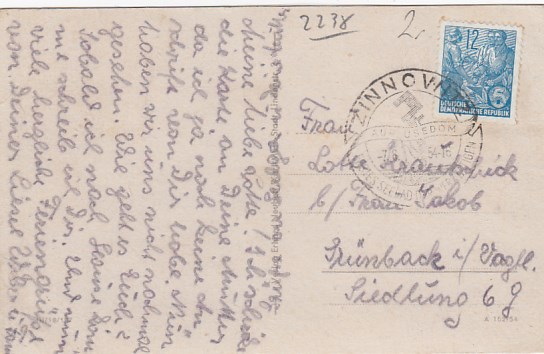 2238
2.
12
DEUTSCHE
DEMOKRATISCHE REPUBLIK
6
ZINNOWITZ
AUF USEDOM
Meine liebe Lotte! Ich schicke
die Karte an Deine Mutter,
da ich ja noch keine An-
schrift von Dir habe. Nun
haben wir uns nicht nochmal
gesehen. Wie geht es Euch?
Sobald ich nach Hause komme
schreib ich Dir. Und nun
viele herzliche Feriengrüße
von Deiner Liesel
Frau
Lotte
b/ Frau Jakob
Grünbach i/Vogtl.
Siedlung 6 g